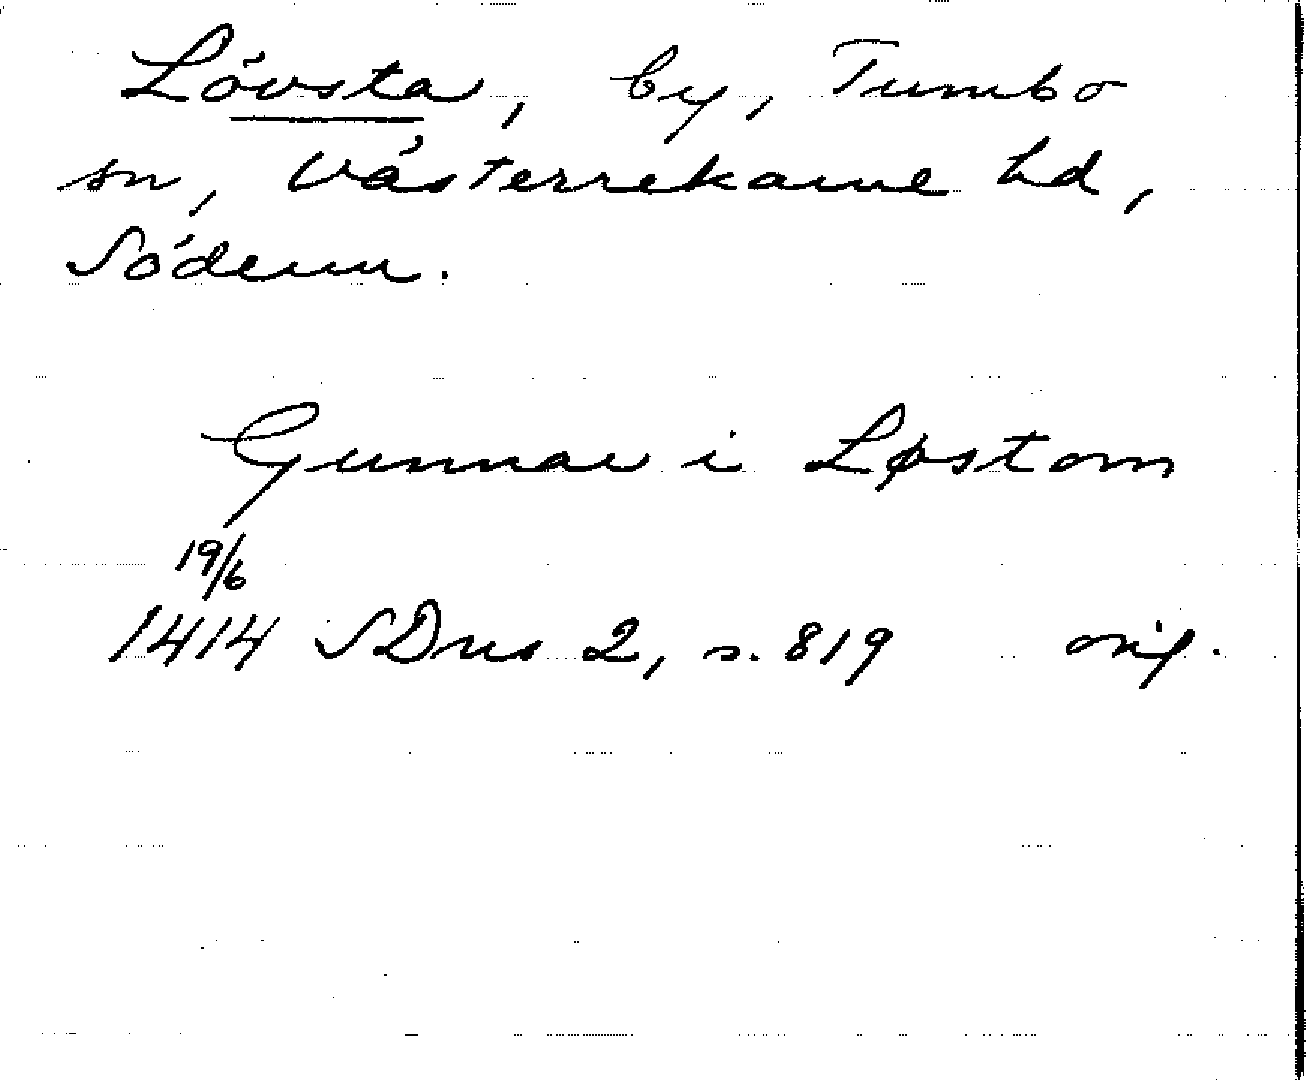 Lövsta, by, Tumbo
sn, Västerrekarne hd,
Söderm.
Gunnar i Løstom
19/6
1414 SDns 2, s. 819 orig.